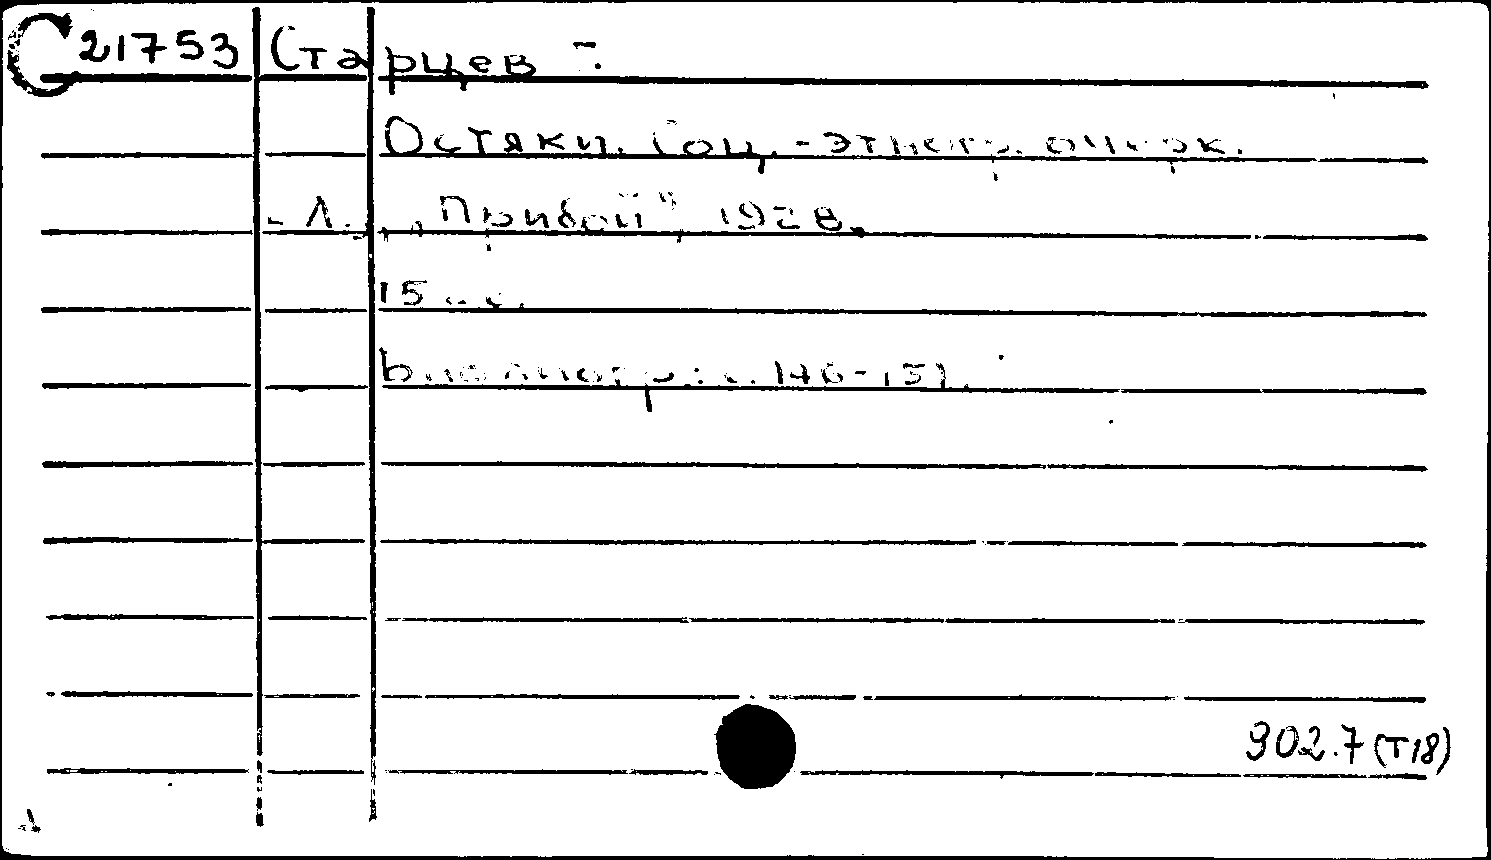 С 21753 Старцев Г.
Остяки. Соц.-этногр. очерк.
- Л., „Прибой", 1928.
15 с.
Библиогр.: с. 146-151.
902.7 (Т18)